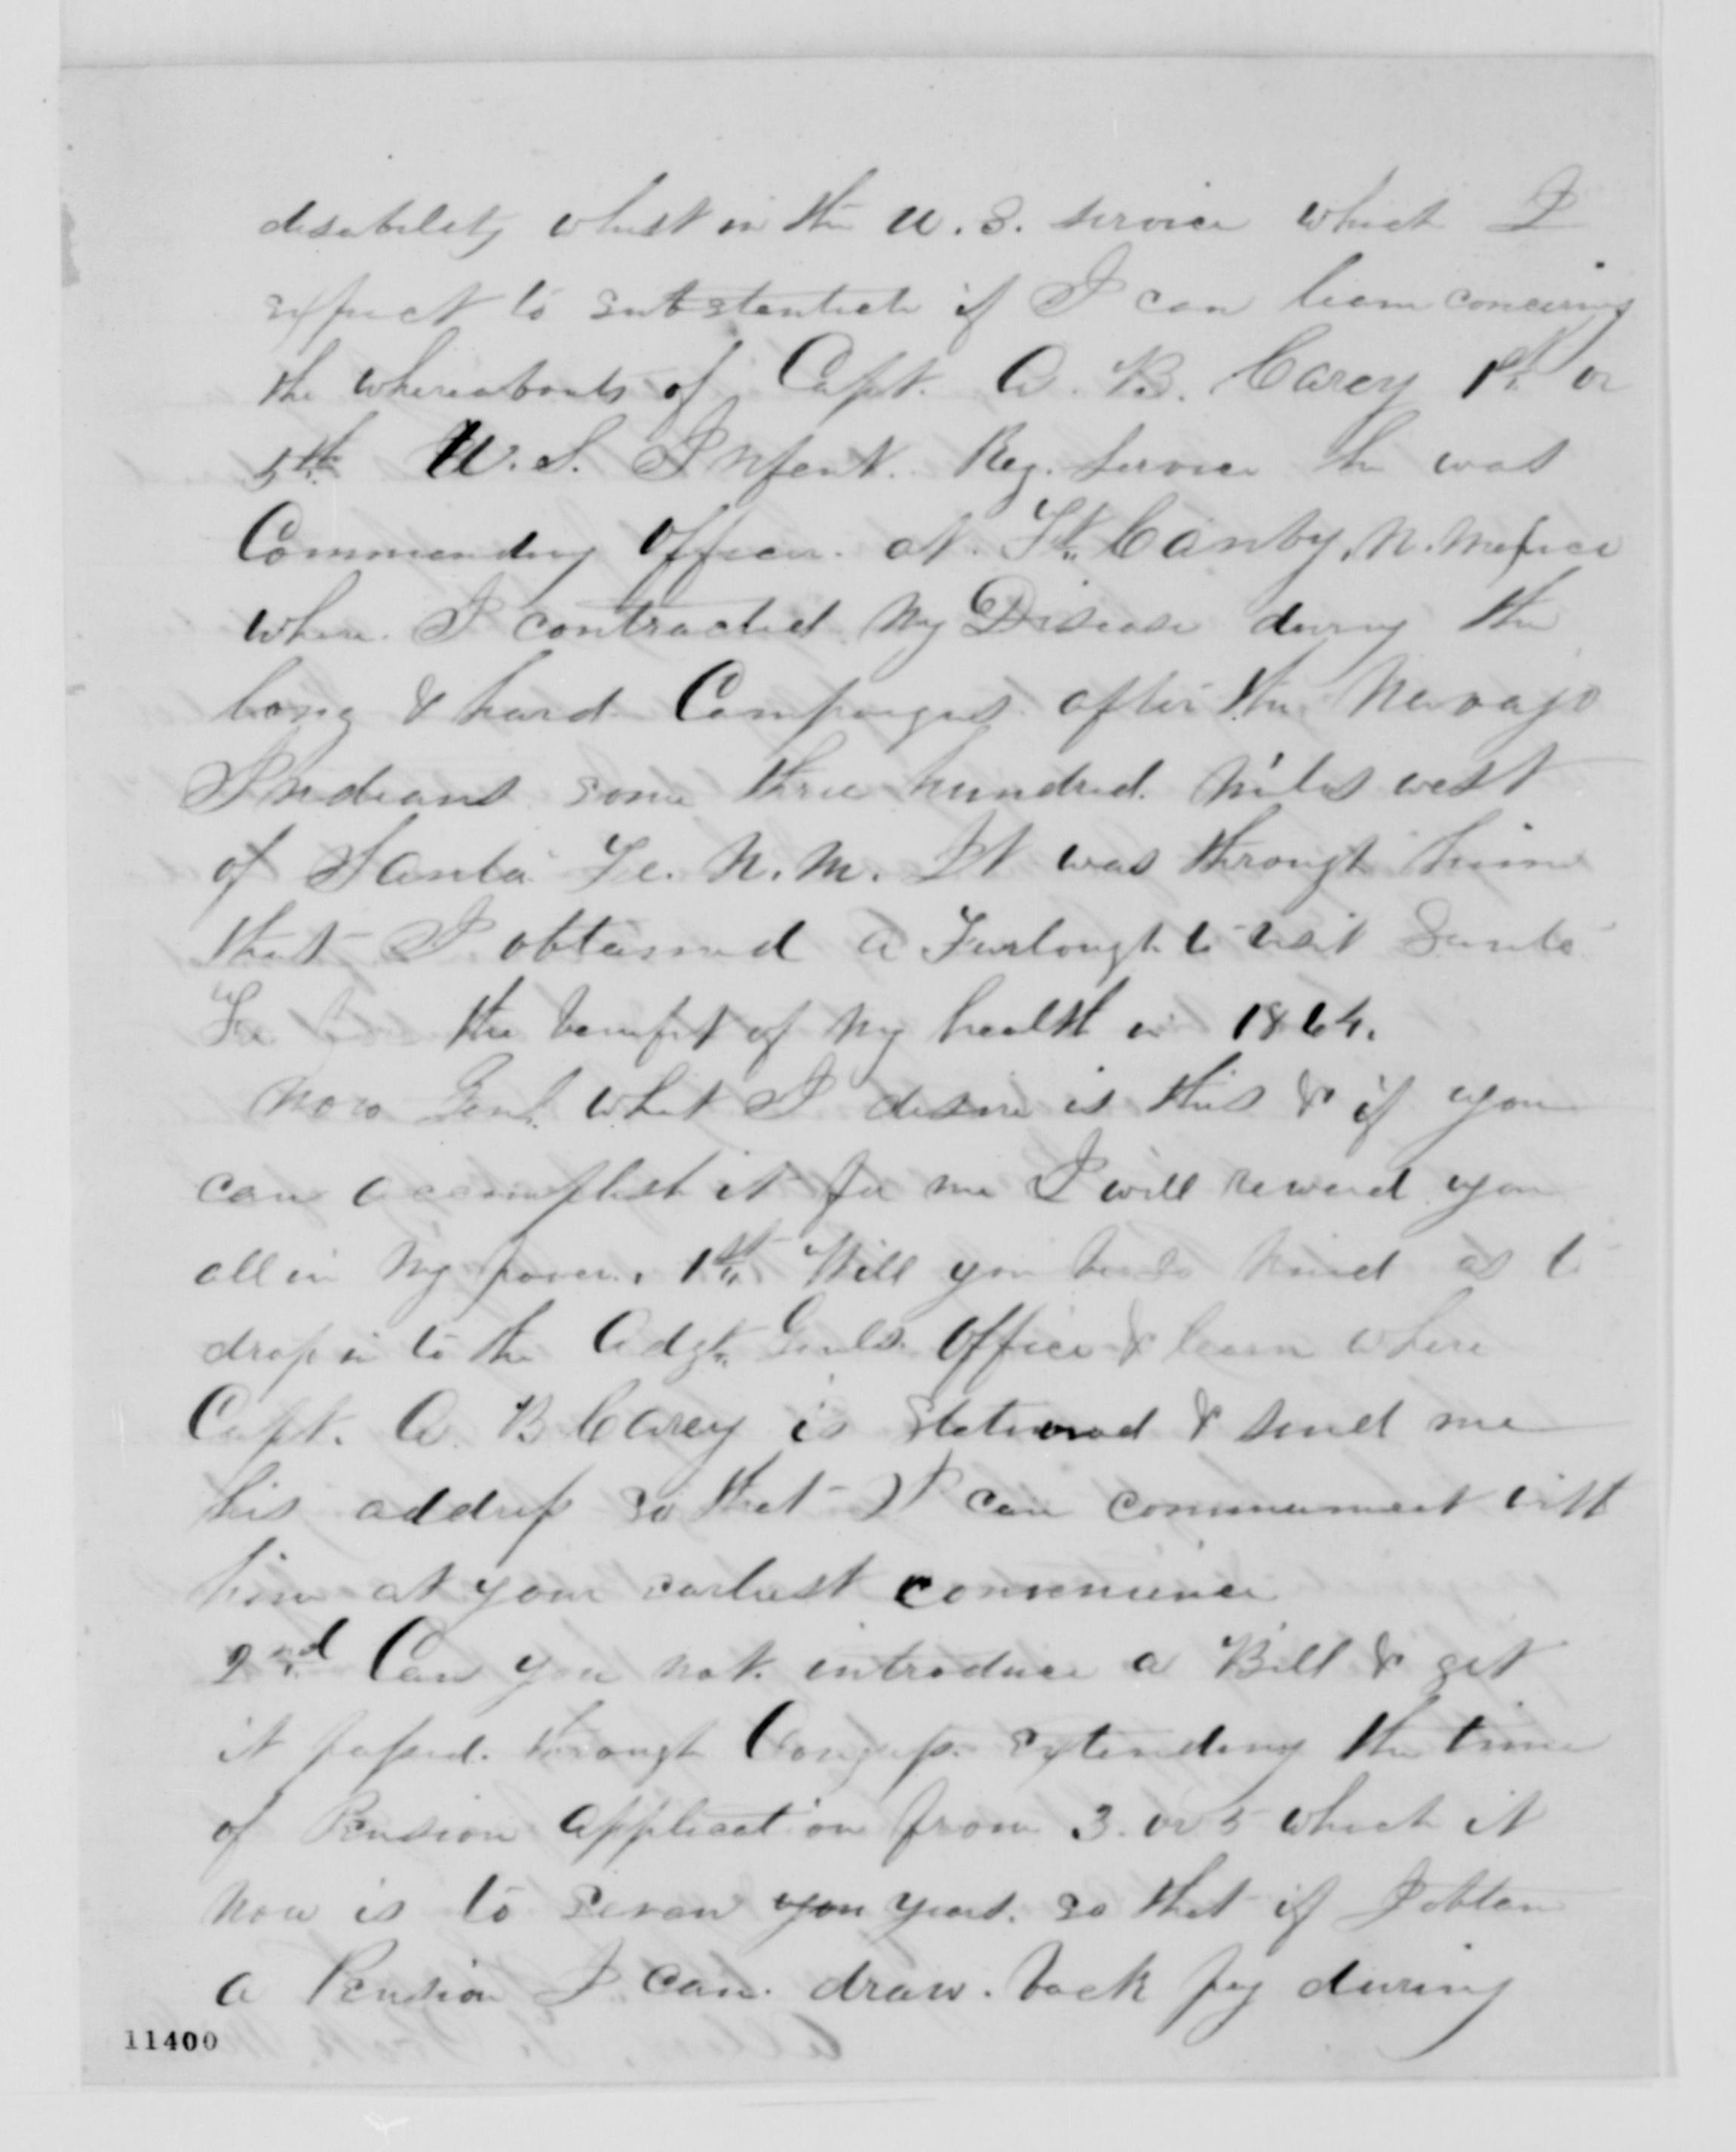 disability whilst in the U. S. service which I
expect to substantiate if I can learn concerning
the whereabouts of Capt. A. B. Carey 1st or
5th U. S. Infant. Reg. Service he was
Commanding Officer at Ft. Canby, N. Mexico
where I contracted My Disease during the
long & hard Campaigns after the Navajo
Indians some three hundred Miles west
of Santa Fe. N. M. It was through him
that I obtained a Furlough to visit Santa
Fe for the benefit of My health in 1864.
Now Genl. what I desire is this & if you
can accomplish it for me I will reward you
all in My power. 1st Will you be so kind as to
drop in to the Adgt. Genls. Office & learn where
Capt. A. B Carey is Stationed & send me
his address so that I can communicat with
him at your earliest convenience
2nd Can you not introduce a Bill & get
it passed through Congress extending the time
of Pension application from 3. or 5 which it
now is to seven you years. so that if I obtain
a Pension I can draw back pay during
11400